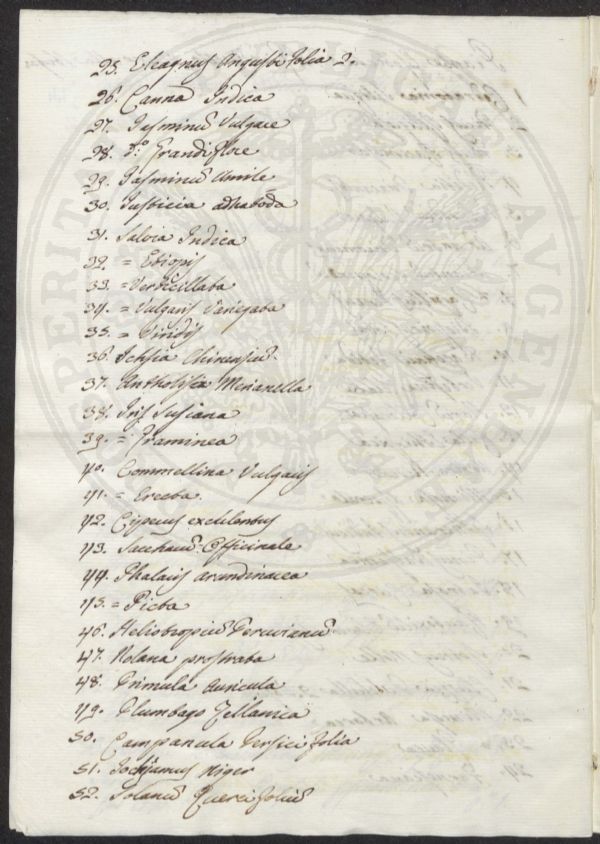 25. Eleagnus Angusti folia 2.
26. Canna Indica
27. Jasminū Vulgare
28. D.º Grandi flore
29. Jasminū Umile
30. Justicia adhatoda
31. Salvia Indica
32. = Etiopis
33. = Verticillata
34. = Vulgaris Variegata
35. = Viridis
36. Ichsia Chinensis
37. Antholisa Merianella
38. Iris Susiana
39. = Graminea
40. Commellina Vulgaris
41. = Erecta.
42. Ciperus exculentus
43. Saccharū Officinale
44. Phalaris arundinacea
45. = Picta
46. Heliotropiū Peruvianū
47. Nolana prostrata
48. Primula auricula
49. Plumbago Zellanica
50. Campanula Persici folia
51. Niger
52. Solanū Querci foliū
PROSPERITATI PUBLICAE AUGENDAE